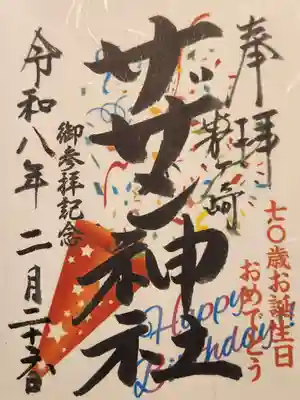 奉拝
茅ヶ崎
七〇歳お誕生日
おめでとう
サザン神社
御参拝記念
令和八年 二月二十六日
Happy
Birthday!